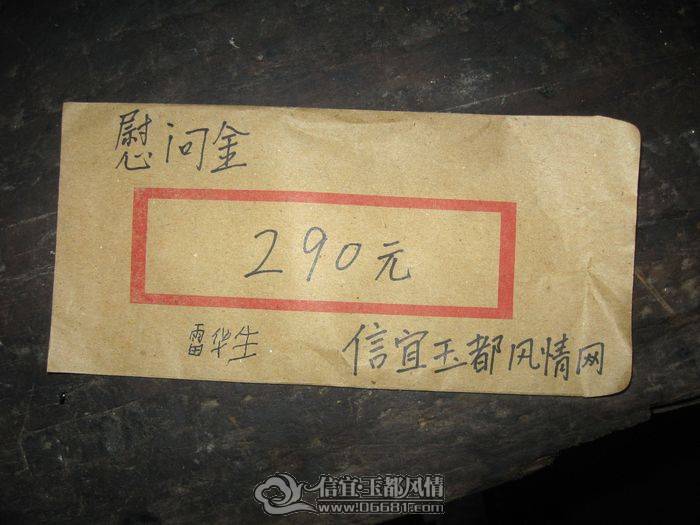 慰问金
290元
雷华生
信宜玉都风情网
信宜·玉都风情
www.06681.com